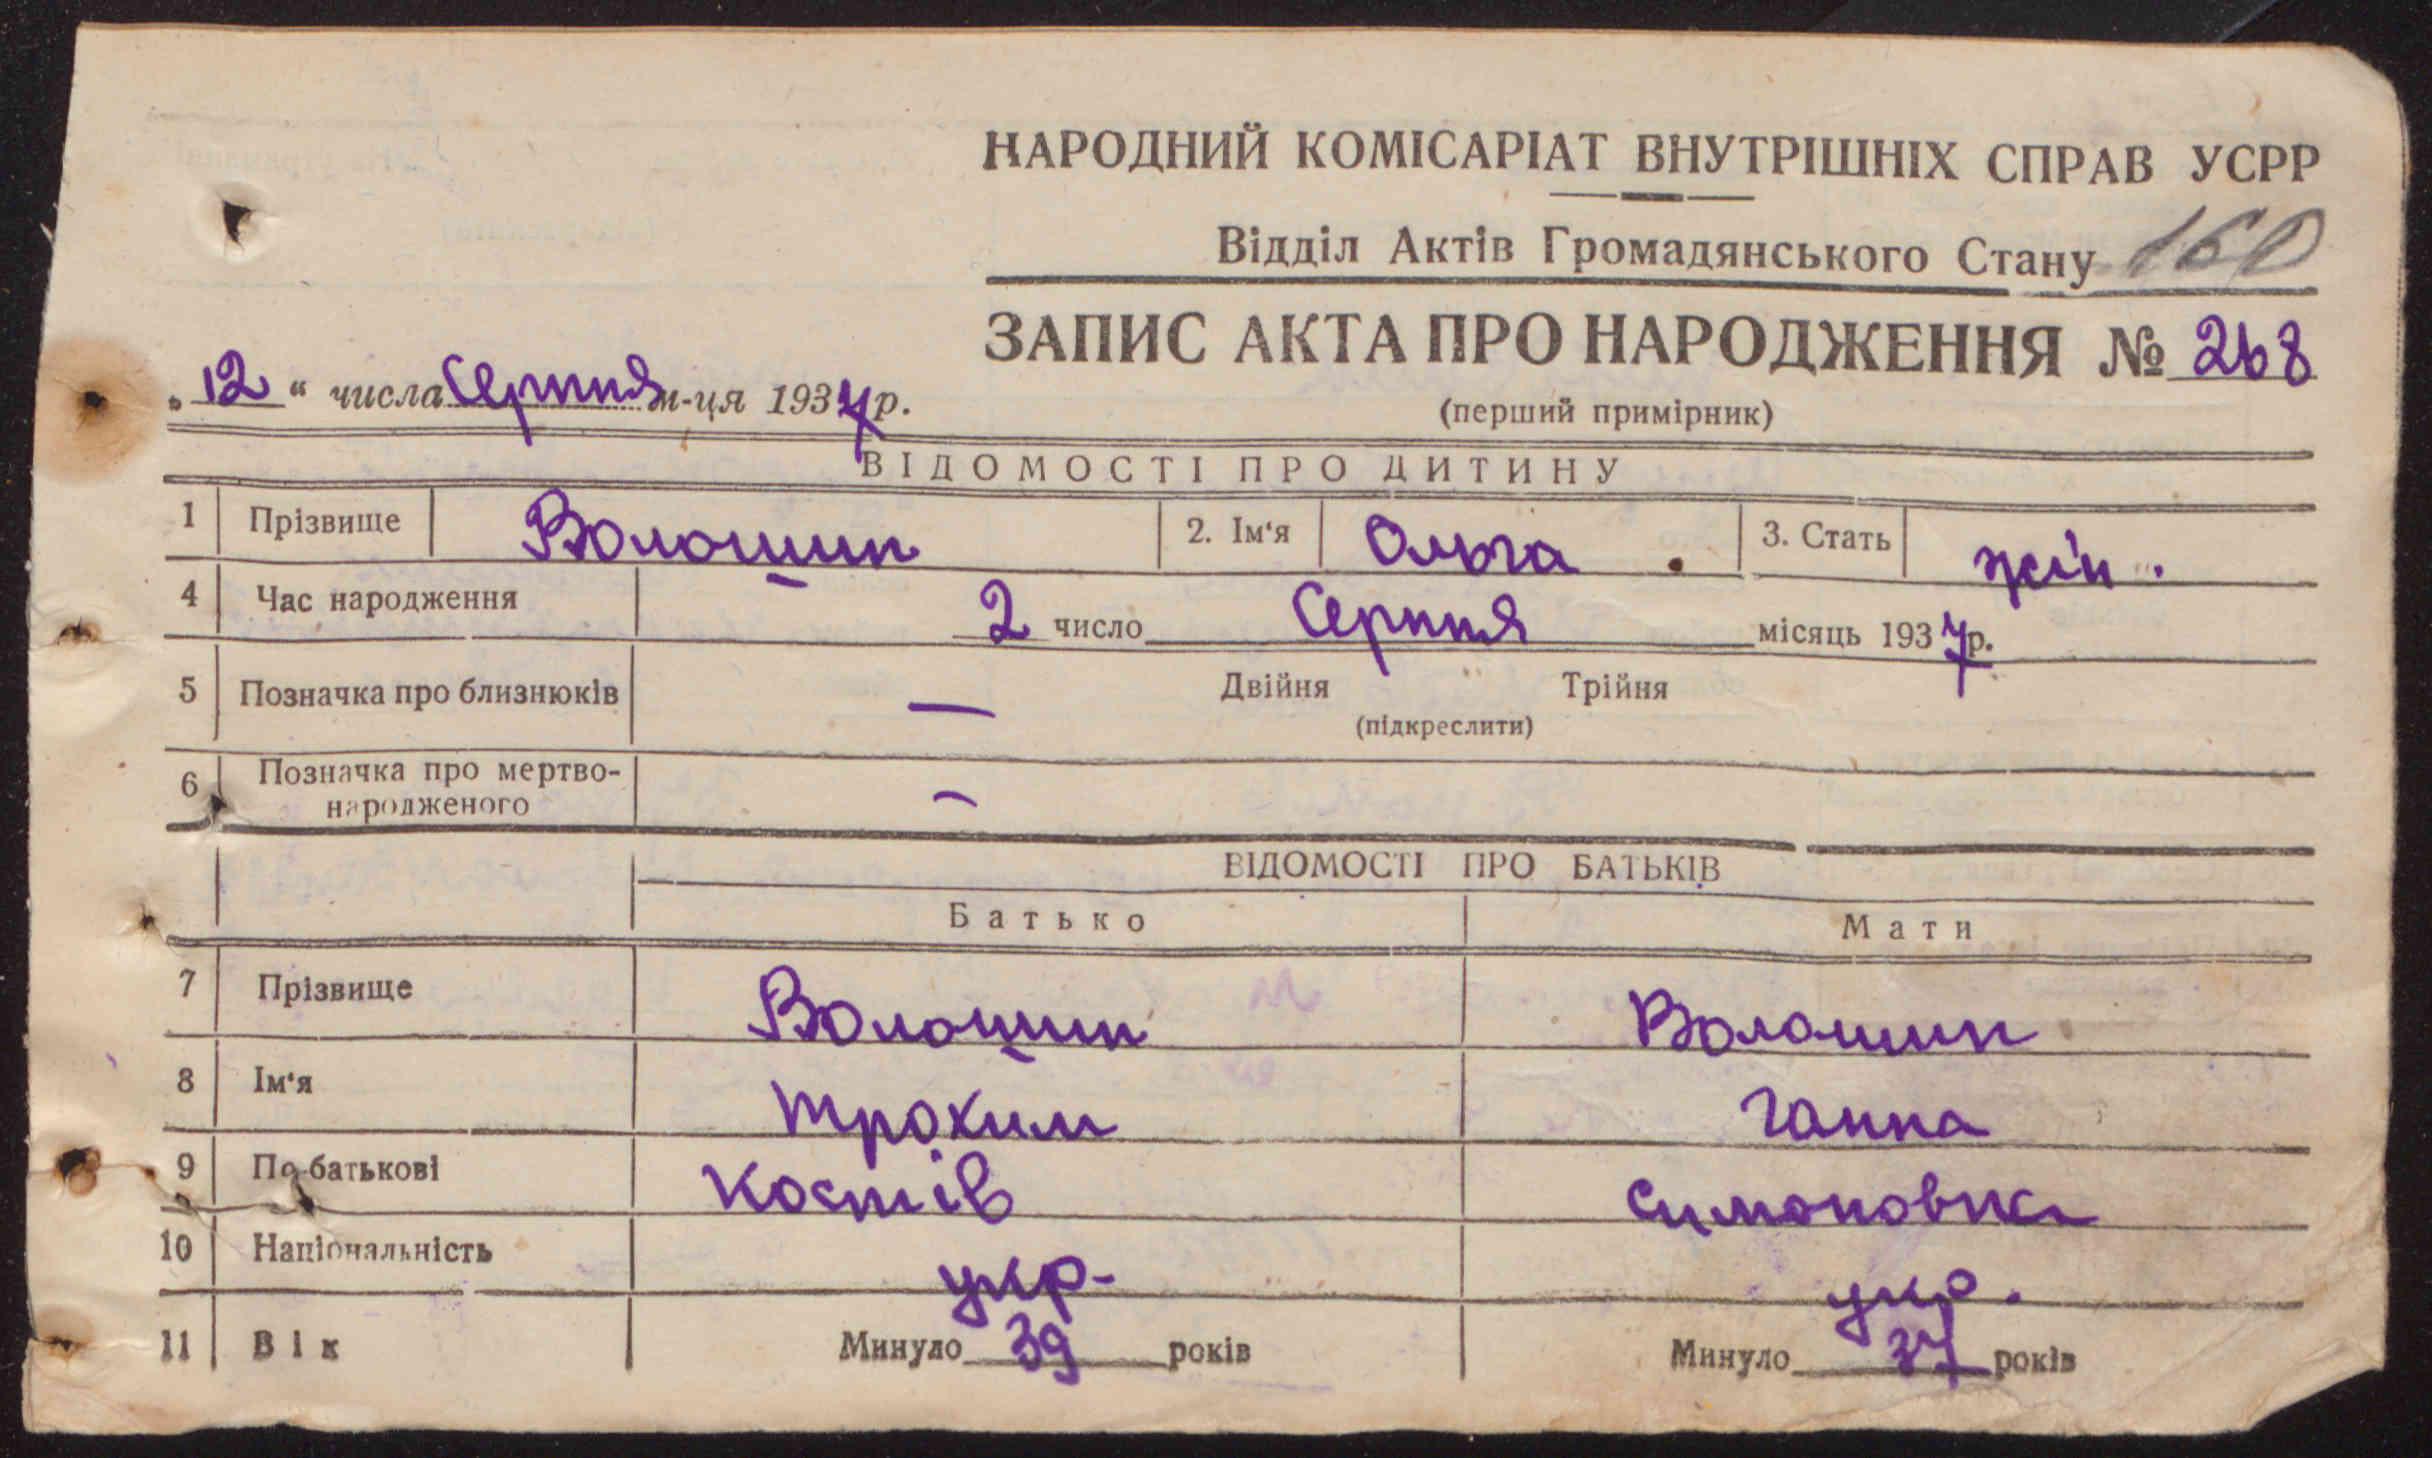 НАРОДНИЙ КОМІСАРІАТ ВНУТРІШНІХ СПРАВ УСРР
Відділ Актів Громадянського Стану 160
ЗАПИС АКТА ПРО НАРОДЖЕННЯ № 268
„12“ числа Серпня м-ця 1937 р.
(перший примірник)
ВІДОМОСТІ ПРО ДИТИНУ
1 Прізвище Волошин 2. Ім‘я Ольга. 3. Стать жін.
4 Час народження 2 число Серпня місяць 1937 р.
5 Позначка про близнюків — Двійня Трійня
(підкреслити)
6 Позначка про мертво-
народженого —
ВІДОМОСТІ ПРО БАТЬКІВ
Батько Мати
7 Прізвище Волошин Волошин
8 Ім‘я Трохим Ганна
9 По-батькові Костів Симоновна
10 Національність укр- укр.
11 Вік Минуло 39 років Минуло 37 років